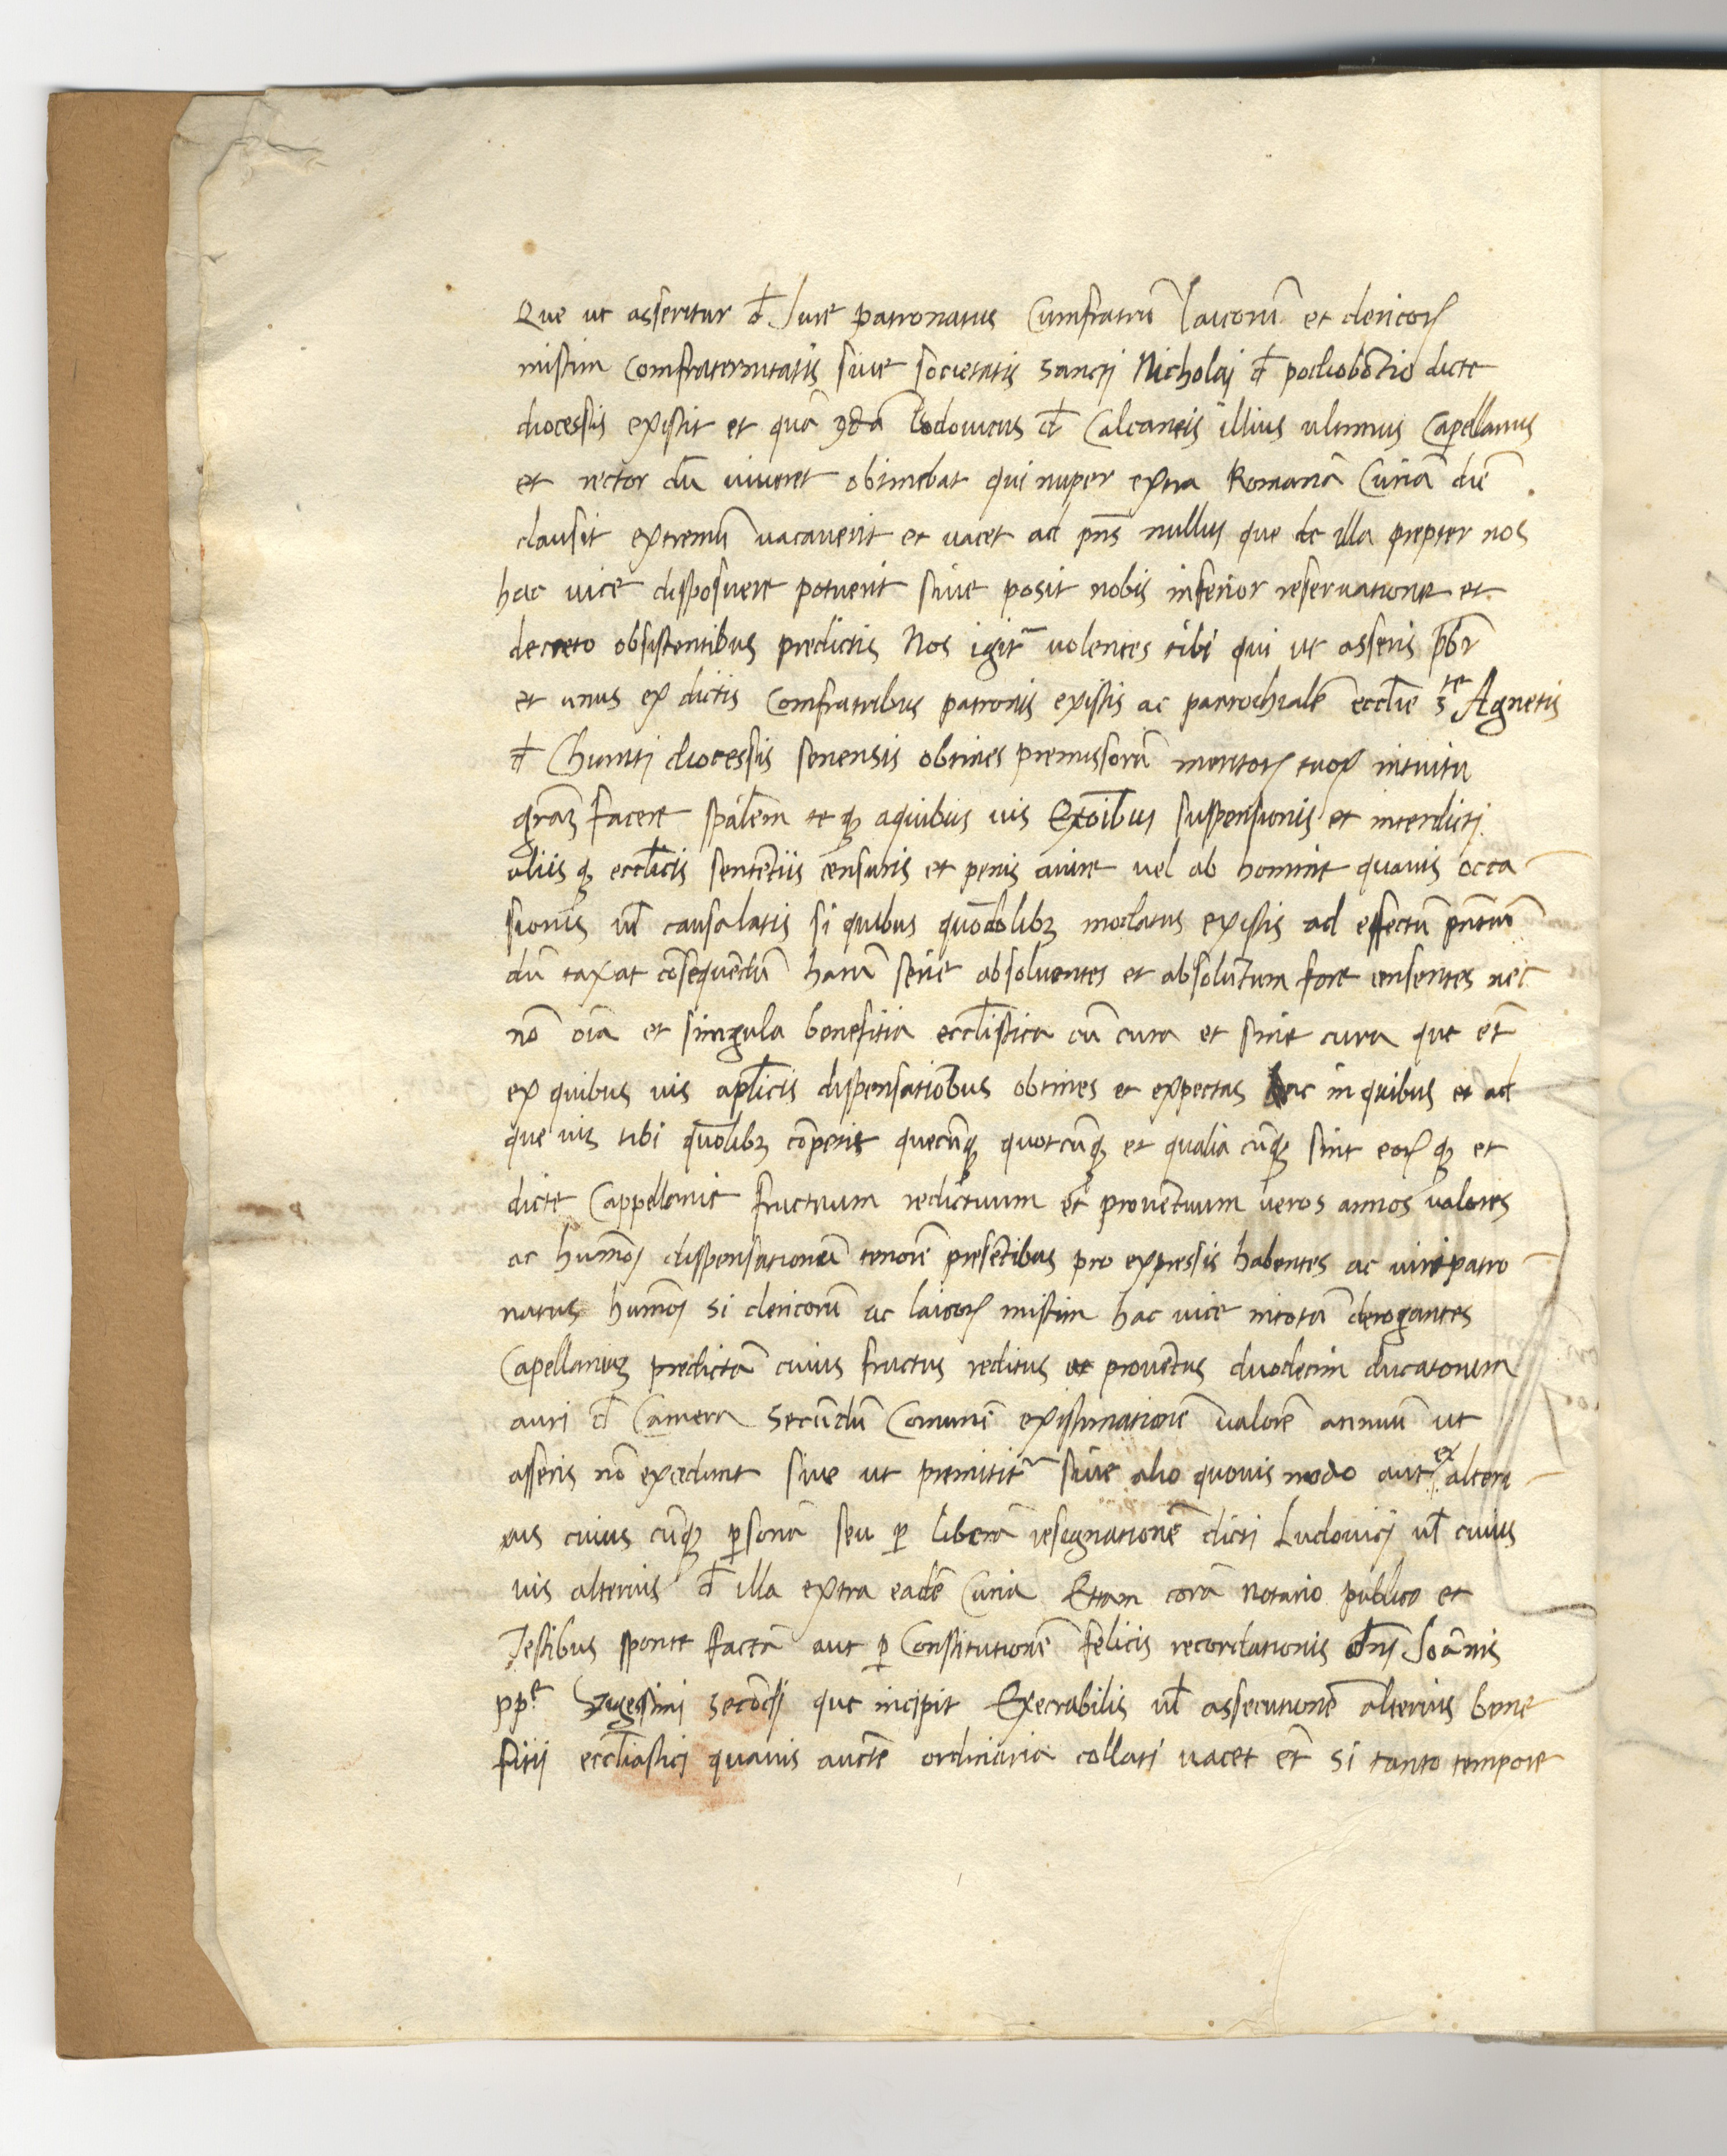 Que ut asseritur đ Jure patronatus Cumfratrū laicorū et clericoꝝ
mistim comfraternitatis sive societatis Sancti Nicholaj đ podiobōtio dicte
diocessis existit et quā ꝯdā Lodovicus đ Calcaneis illius ultimus Capellanus
et rector dū viveret obtinebat qui nuper extra Romanā Curiā diē
clausit extremū vacaverit et vacet ad pn̄s nullus que de illa prepter nos
hac vice disposuere potuerit sive posit nobis inferior reservatione et
decreto obsistentibus predictis Nos igit̃ volentes tibi qui ut asseris pb̄r
et unus ex dictis comfratribus patronis existis ac parrochialē eccl̄ie Sᵗᵉ Agnetis
đ Chianti diocessis senensis obtines premissorū meritoꝝ tuoꝝ intuitu
gr̄aꝫ facere spāl̄em te qꝫ aquibus vis Ex̄oībus suspensionis et interdicti
aliis qꝫ eccl̄icis sentētiis cēnsuris et penis aiure vel ab homine quavis occa
sionis vl̄ causalatis si quibus quōdolibꝫ inodatus existis ad effectū pn̄tiū
dū taxat cōsequēdū harū serie absolventes et absolutum fore censentes nec
nō oīa et singula benefitia eccl̄istica cū cura et sine cura que et̄
ex quibus vis apl̄icis dispensatiōbus obtines et expectas ac in quibus et ad
que vis tibi quōlibꝫ cōpetit quecūqꝫ quotcūqꝫ et qualia cūqꝫ sint eoꝝ qꝫ et
dicte Cappellanie fructuum redictuum et provētuum veros annos valores
ac humōj dispensationū tenorē presētibus pro expressis habentes ac iuripatro
natus humōj si clericorū ac laicoꝝ mistim hac vice intotū derogantes
Capellaniaꝫ predictā cuius fructus reditus et provētus duodecim ducatorum
auri đ Camera Secūdū Comunē existimationē valorē annuū ut
asseris nō excedunt sive ut premitit̃ sive alio quovis modo aut ex alteri
us cuius cūqꝫ ꝑsonā seu ꝑ liberā resignationē dicti Ludovicj vl̄ cuius
vis alterius đ illa extra eadē Curia Etiam corā notario publico et
Testibus sponte factā aut ꝑ Constitutionē felicis recordationis dn̄j Joānis
ppᵉ Vigessimi secōdj que incipit Execrabilis vl̄ assecutionē alterius bene
fitii eccl̄iasticj quavis auct̄e ordinaria collati vacet et̄ si tanto tempore